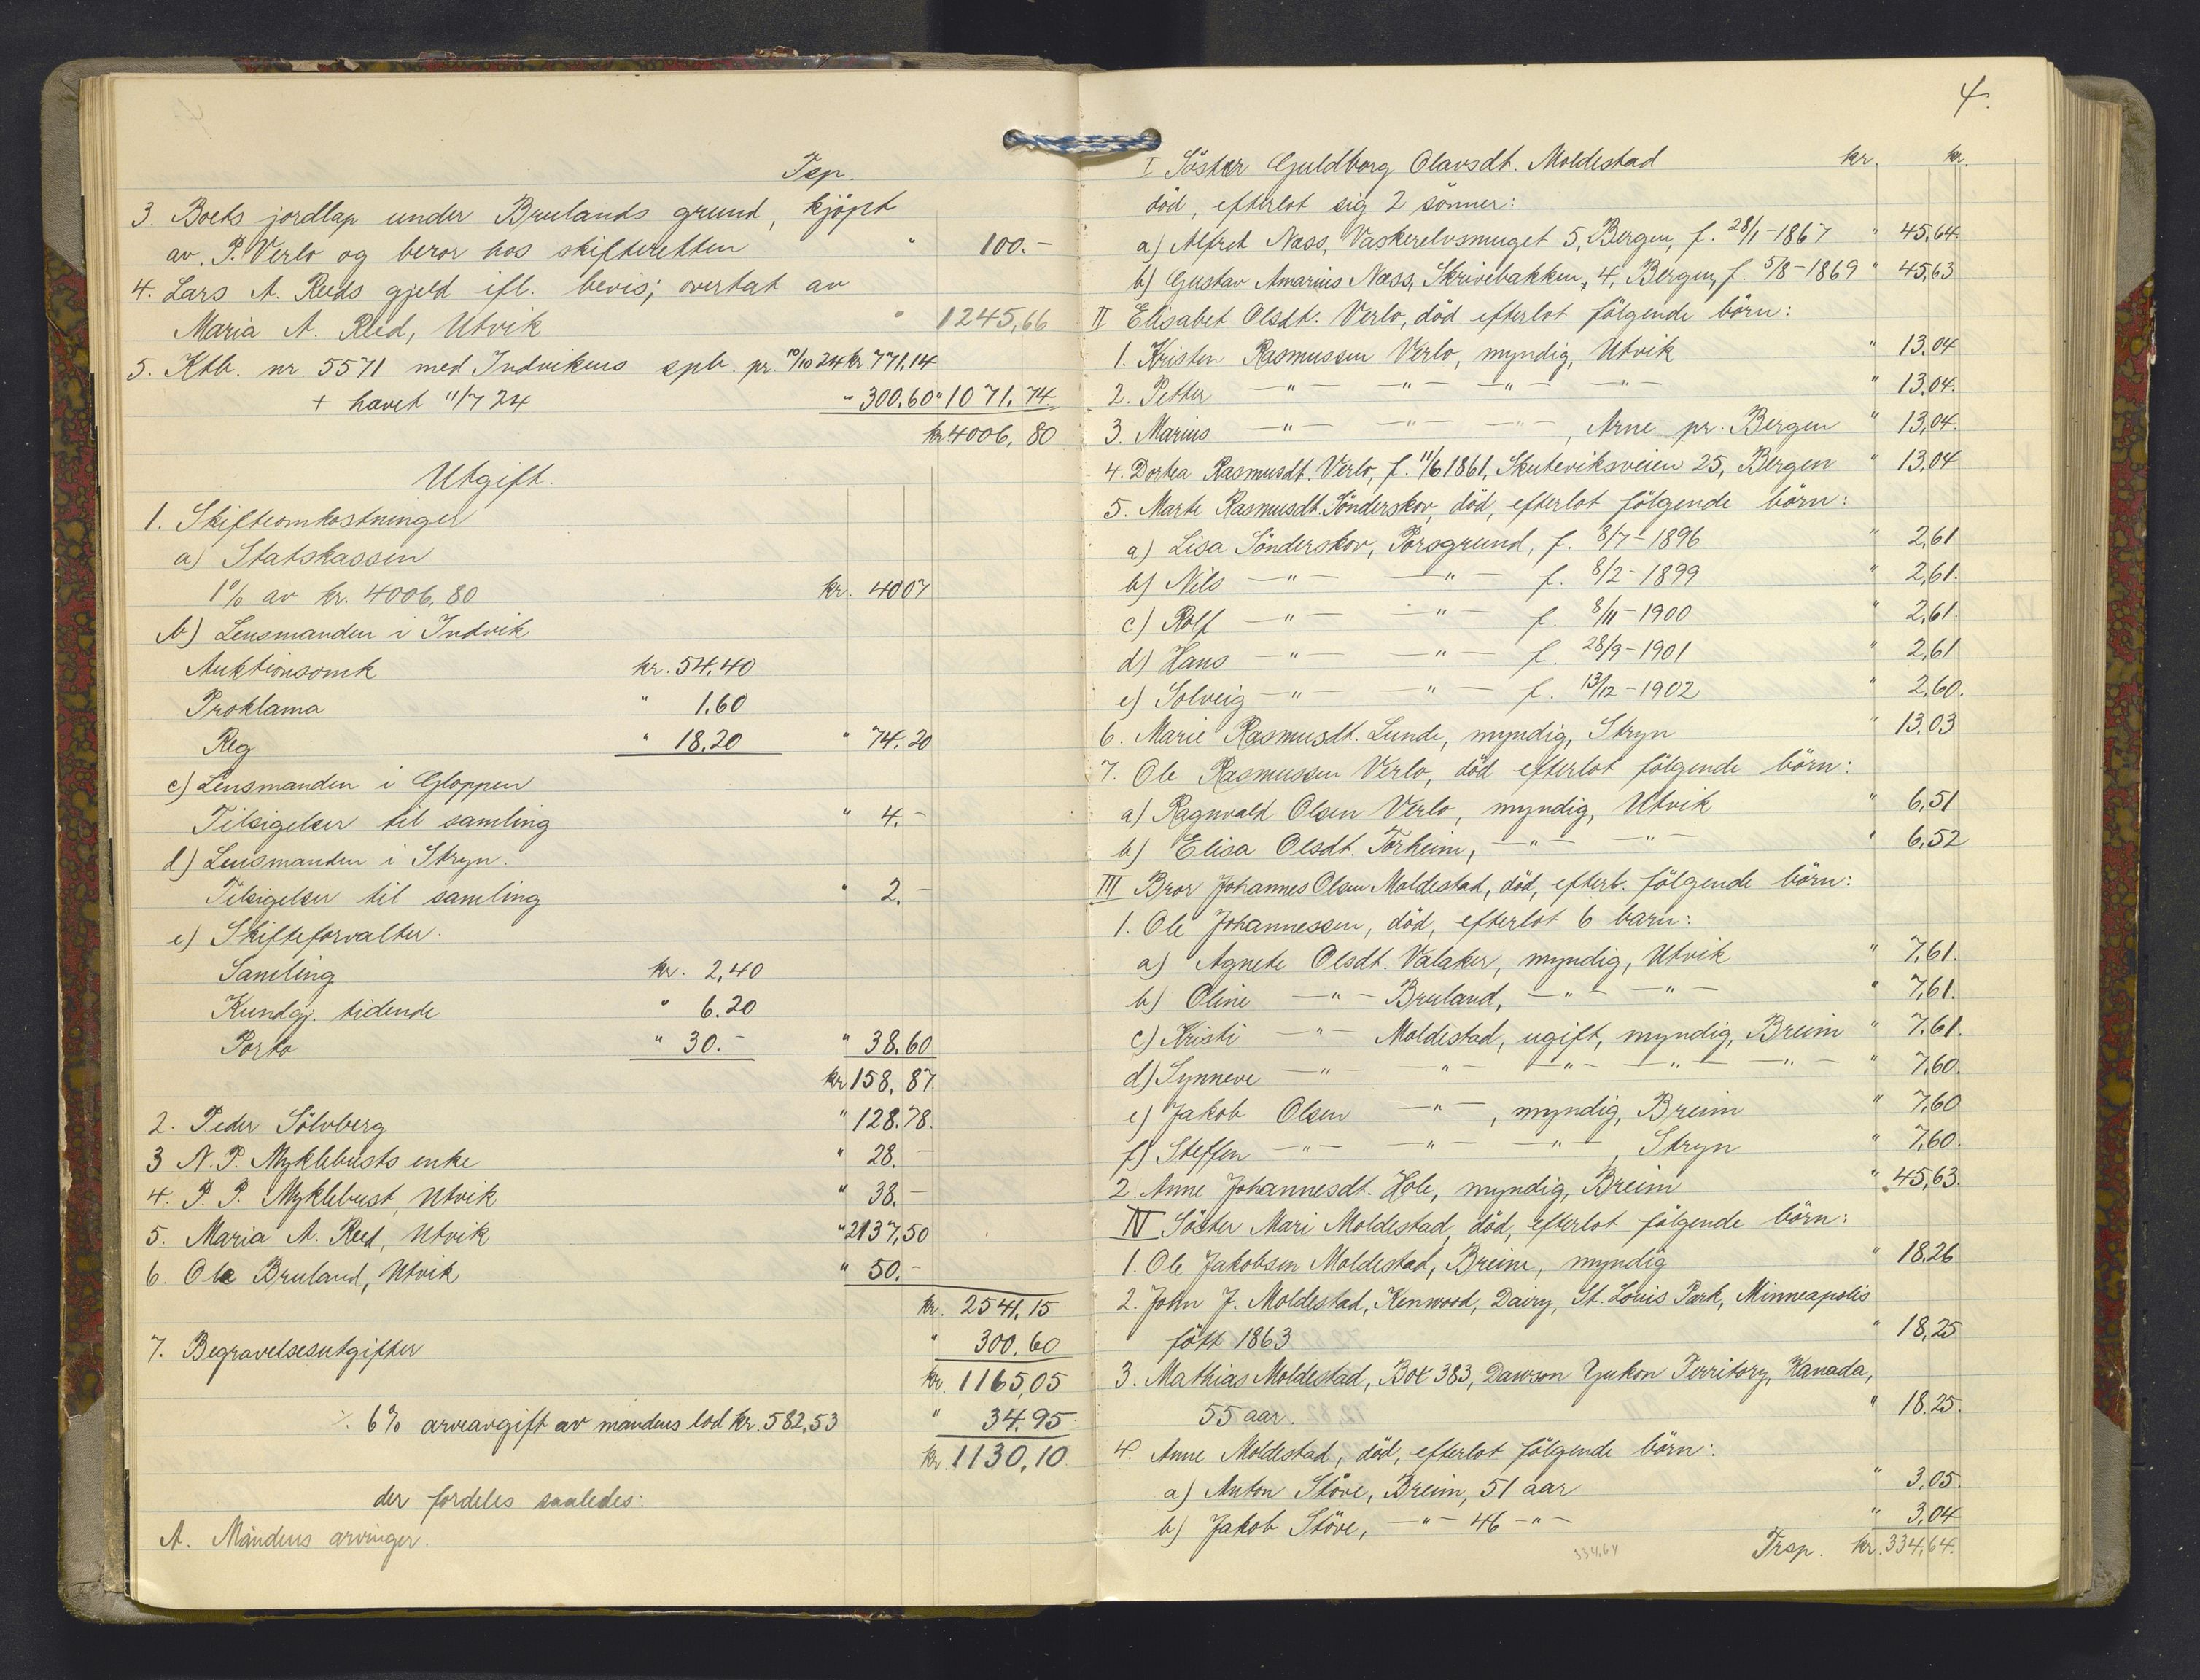 Tsp.
3. Boets jordlap under Brulands grund, kjöpt
av. P. Verlo og beror hos skifteretten " 100.-
4. Lars A. Reeds gjeld ifl. bevis; overtat av
Maria A. Reed, Utvik " 1245,66
5. Ktb. nr. 5571 med Indvikens spb. pr. 10/10 24 kr. 771,14
+ hævet 11/7 24 " 300.60 " 1071.74.
kr 4006,80
Utgift.
1. Skifteomkostninger
a) Statskassen
1% av kr. 4006,80 kr. 4007
b) Lensmanden i Indvik
Auktionsomk kr. 54.40
Proklama " 1.60
Reg " 18.20 " 74.20
c) Lensmanden i Gloppen
Tilsigelser til samling " 4.-
d) Lensmanden i Stryn.
Tilsigelser til samling " 2.-
e) Skifteforvalter.
Samling kr. 2,40
Kundgj. tidende " 6.20
Porto " 30.- " 38.60
kr 158,87.
2. Peder Sölvberg " 128.78.
3 N. P. Myklebusts enke " 28.-
4. P. P. Myklebust, Utvik " 38.-
5. Maria A. Reed, Utvik " 2137,50
6. Ole Bruland, Utvik " 50.-
kr. 2541,15
7. Begravelsesutgifter " 300.60
kr. 1165,05
÷ 6% arveavgift av mandens lod kr. 582,53 " 34.95
kr. 1130,10
der fordeles saaledes:
A. Mandens arvinger.
4.
I Söster Guldborg Olavsdt. Moldestad kr. kr.
död, efterlot sig 2 sönner:
a) Alfret Næss, Vaskerelvsmuget 5, Bergen, f. 28/1-1867 " 45,64.
b) Gustav Amarius Næss, Skrivebakken, 4, Bergen, f. 5/8-1869 " 45,63
II Elisabet Olsdt. Verlo, död efterlot fölgende börn:
1. Kristen Rasmussen Verlo, myndig, Utvik " 13.04
2. Petter -"- -"- -"- -"- " 13,04.
3. Marius -"- -"- -"-, Arne pr. Bergen " 13,04.
4. Dortea Rasmusdt. Verlo, f. 11/6 1861, Skuteviksveien 25, Bergen " 13,04
5. Marte Rasmusdt. Sönderskov, död, efterlot fölgende börn:
a) Lisa Sönderskov, Porsgrund, f. 8/7-1896 " 2,61
b) Nils -"- -"- f. 8/2-1899 " 2,61.
c) Rolf -"- -"- f. 8/11-1900 " 2,61.
d) Hans -"- -"- f. 28/9-1901 " 2,61
e) Solveig -"- -"- f. 13/12-1902 " 2,60.
6. Marie Rasmusdt. Lunde, myndig, Stryn " 13,03
7. Ole Rasmussen Verlo, död efterlot fölgende börn:
a) Ragnvald Olsen Verlo, myndig, Utvik " 6,51
b) Elisa Olsdt. Torheim, -"- -"- " 6,52
III Bror Johannes Olsen Moldestad, död, efterl. fölgende börn:
1. Ole Johannessen, död, efterlot 6 barn:
a) Agnete Olsdt. Valaker, myndig, Utvik " 7,61.
b) Oline -"- Bruland, -"- -"- " 7,61.
c) Kristi -"- Moldestad, ugift, myndig, Breim " 7,61.
d) Synneve -"- -"- -"- -"- -"- " 7,60.
e) Jakob Olsen -"-, myndig, Breim " 7,60
f) Steffen -"- -"- -"-, Stryn " 7,60.
2. Anne Johannesdt. Hole, myndig, Breim " 45,63.
IV Söster Mari Moldestad, död, efterlot fölgende börn:
1. Ole Jakobsen Moldestad, Breim, myndig " 18,26
2. John J. Moldestad, Kenwood, Dairy, St. Louis Park, Minneapolis
född 1863 " 18,25
3. Mathias Moldestad, Box 383, Dawson Yukon Territory, Kanada,
55 aar. " 18,25.
4. Anne Moldestad, död, efterlot fölgende börn:
a) Anton Støve, Breim, 51 aar " 3,05.
b) Jakob Støve, -"- 46 -"- " 3,04
334,64 Trsp. kr. 334,64.